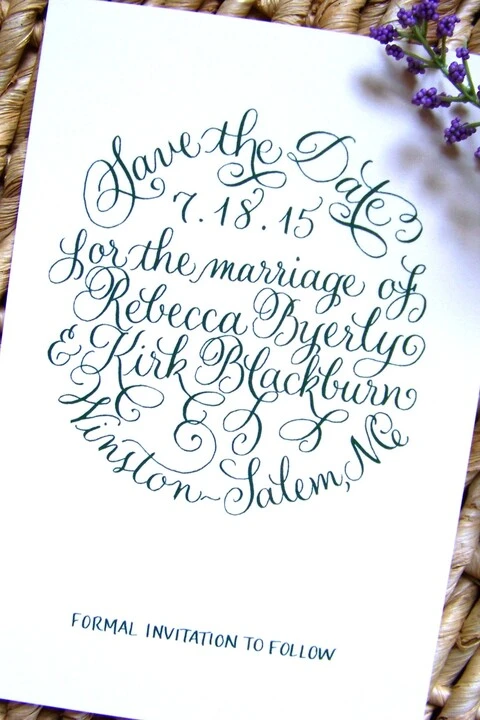 Save the Date
7.18.15
for the marriage of
Rebecca Byerly
& Kirk Blackburn
Winston-Salem, NC
FORMAL INVITATION TO FOLLOW